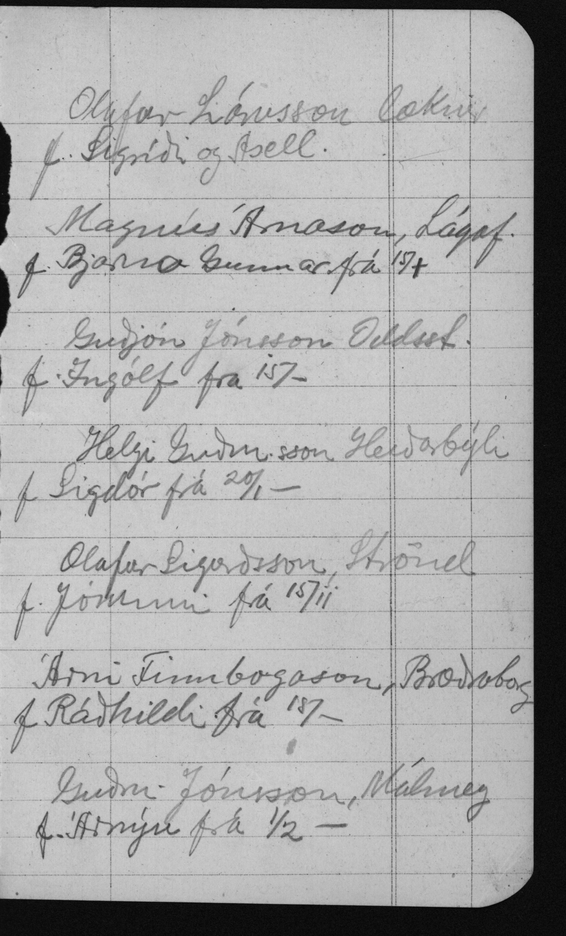 Olafur Lárusson læknir
f. Sigríði og Axell.
Magnús Árnason, Lágaf.
f. Bjarna Gunnar frá 15/1
Guðjón Jónsson Oddsst.
f. Ingólf frá 15/-
Helgi Guðm.sson Heiðarbýli
f Sigdór frá 20/1 -
Olafur Sigurðsson, Strönd
f. Jórunni frá 15/11
Árni Finnbogason, Bræðraborg
f Ráðhildi frá 18/-
Guðm. Jónsson, Málmey
f. Árnýu frá 1/2 -